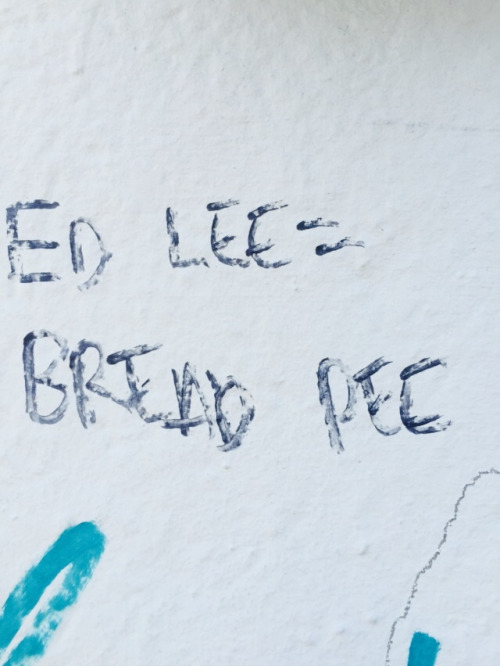 ED LEE=
BREAD PEE